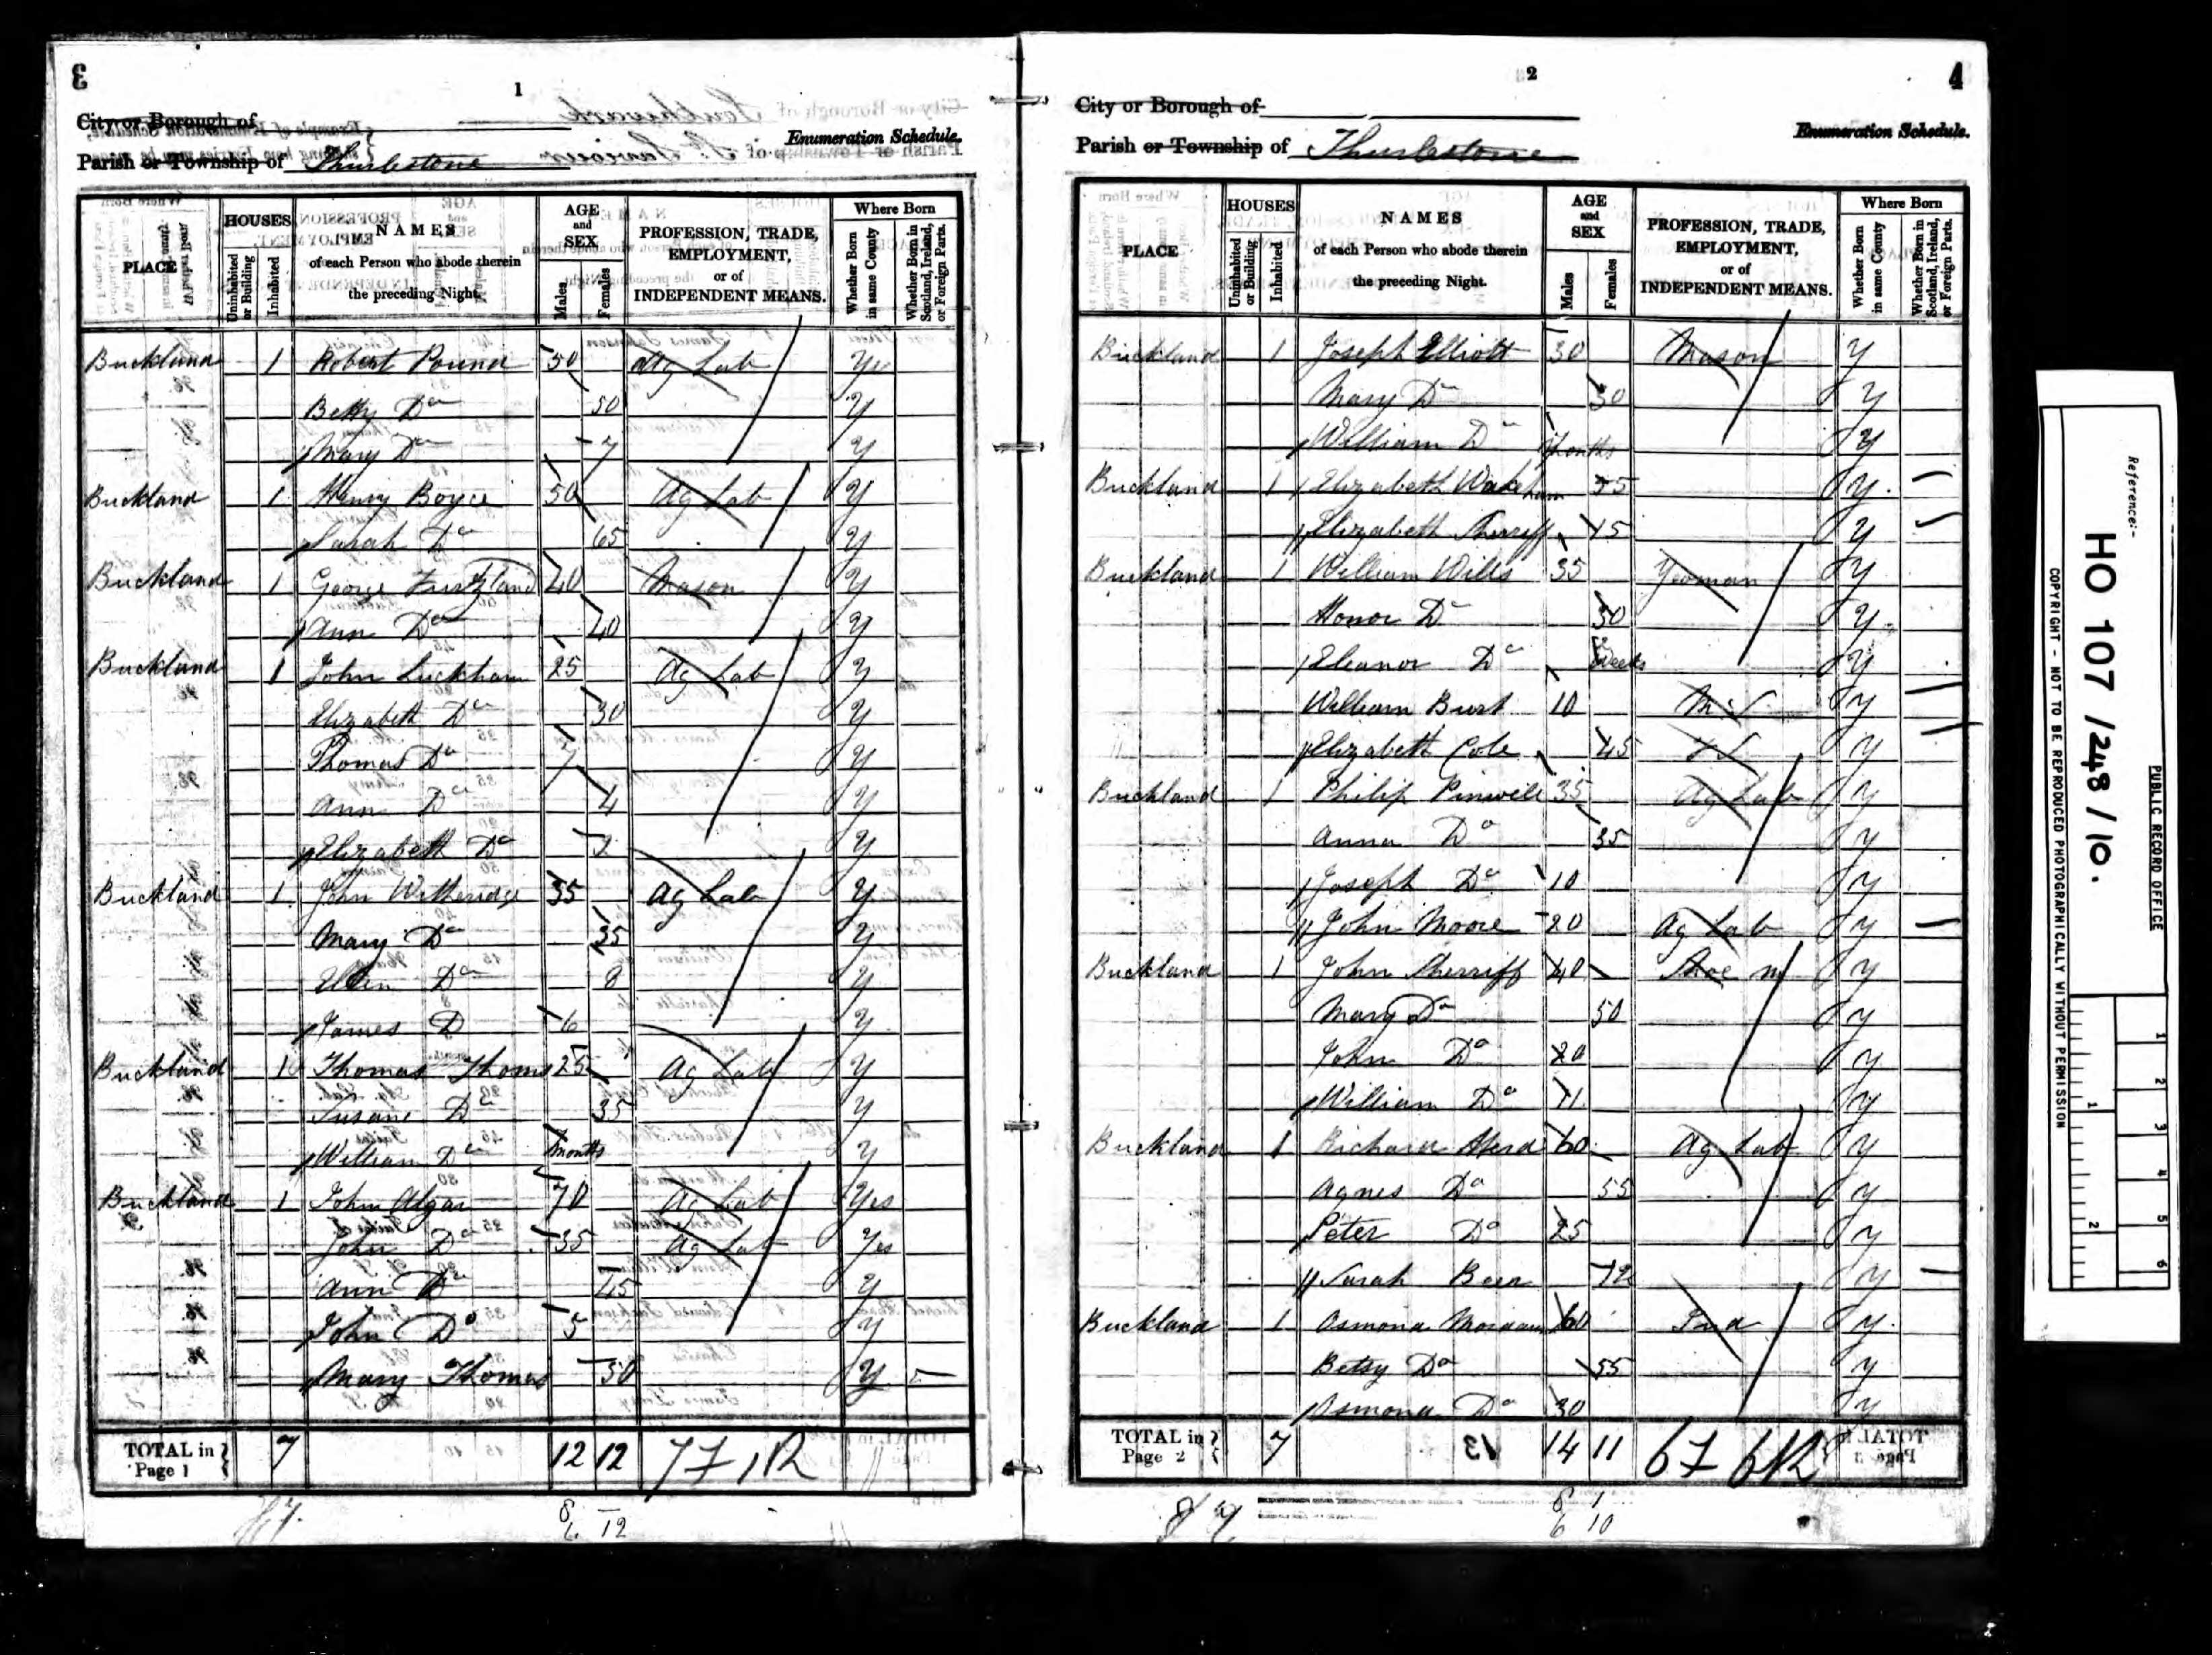 3
1
City or Borough of
Parish or Township of Thurlestone
Enumeration Schedule.
PLACE
HOUSES
Uninhabited or Building
Inhabited
NAMES
of each Person who abode therein
the preceding Night.
AGE
and
SEX
Males
Females
PROFESSION, TRADE,
EMPLOYMENT,
or of
INDEPENDENT MEANS.
Where Born
Whether Born in same County
Whether Born in Scotland, Ireland, or Foreign Parts.
Buckland 1 Robert Pound 50 Ag Lab Yes
Betty Do 50 Y
Mary Do 7 Y
Buckland 1 Henry Boyce 50 Ag Lab Y
Sarah Do 65 Y
Buckland 1 George 40 Mason Y
Ann Do 40 Y
Buckland 1 John Luckham 25 Ag Lab Y
Elizabeth Do 30 Y
Thomas Do 7 Y
Ann Do 4 Y
Elizabeth Do 2 Y
Buckland 1 John Witheridge 35 Ag Lab Y
Mary Do 35 Y
Ellen Do 8 Y
James D 6 Y
Buckland 1 Thomas Thoms 25 Ag Lab Y
Susan Do 35 Y
William Do months Y
Buckland 1 John Algar 70 Ag Lab Yes
John Do 35 Ag Lab Yes
Ann Do 45 Y
John Do 5 Y
Mary Thomas 50 Y
TOTAL in Page 1 7 12 12 7F 1R
8
6 12
2
4
City or Borough of
Parish or Township of Thurlestone
Enumeration Schedule.
PLACE
HOUSES
Uninhabited or Building
Inhabited
NAMES
of each Person who abode therein
the preceding Night.
AGE
and
SEX
Males
Females
PROFESSION, TRADE,
EMPLOYMENT,
or of
INDEPENDENT MEANS.
Where Born
Whether Born in same County
Whether Born in Scotland, Ireland, or Foreign Parts.
Buckland 1 Joseph Elliott 30 Mason Y
Mary Do 30 Y
William Do months Y
Buckland 1 Elizabeth Wakeham 55 Y
Elizabeth Sherriff 15 Y
Buckland 1 William Wills 35 Yeoman Y
Honor Do 30 Y
Eleanor Do weeks Y
William Burt 10 M.S Y
Elizabeth Cole 45 F S Y
Buckland 1 Philip Pinwill 35 Ag Lab Y
Anna Do 35 Y
Joseph Do 10 Y
John Moore 20 Ag Lab Y
Buckland 1 John Sherriff 40 Shoe m Y
Mary Do 50 Y
John Do 20 Y
William Do 11 Y
Buckland 1 Richard Herd 60 Ag Lab Y
Agnes Do 55 Y
Peter Do 25 Y
Sarah Beer 12 Y
Buckland 1 Osmond 60 Ind Y
Betsy Do 55 Y
Osmond Do 30 Y
TOTAL in Page 2 7 14 11 6F 6R
8 1
6 10
Reference:-
HO 107/248/10.
PUBLIC RECORD OFFICE
COPYRIGHT - NOT TO BE REPRODUCED PHOTOGRAPHICALLY WITHOUT PERMISSION
1
2
3
4
5
6
1
2